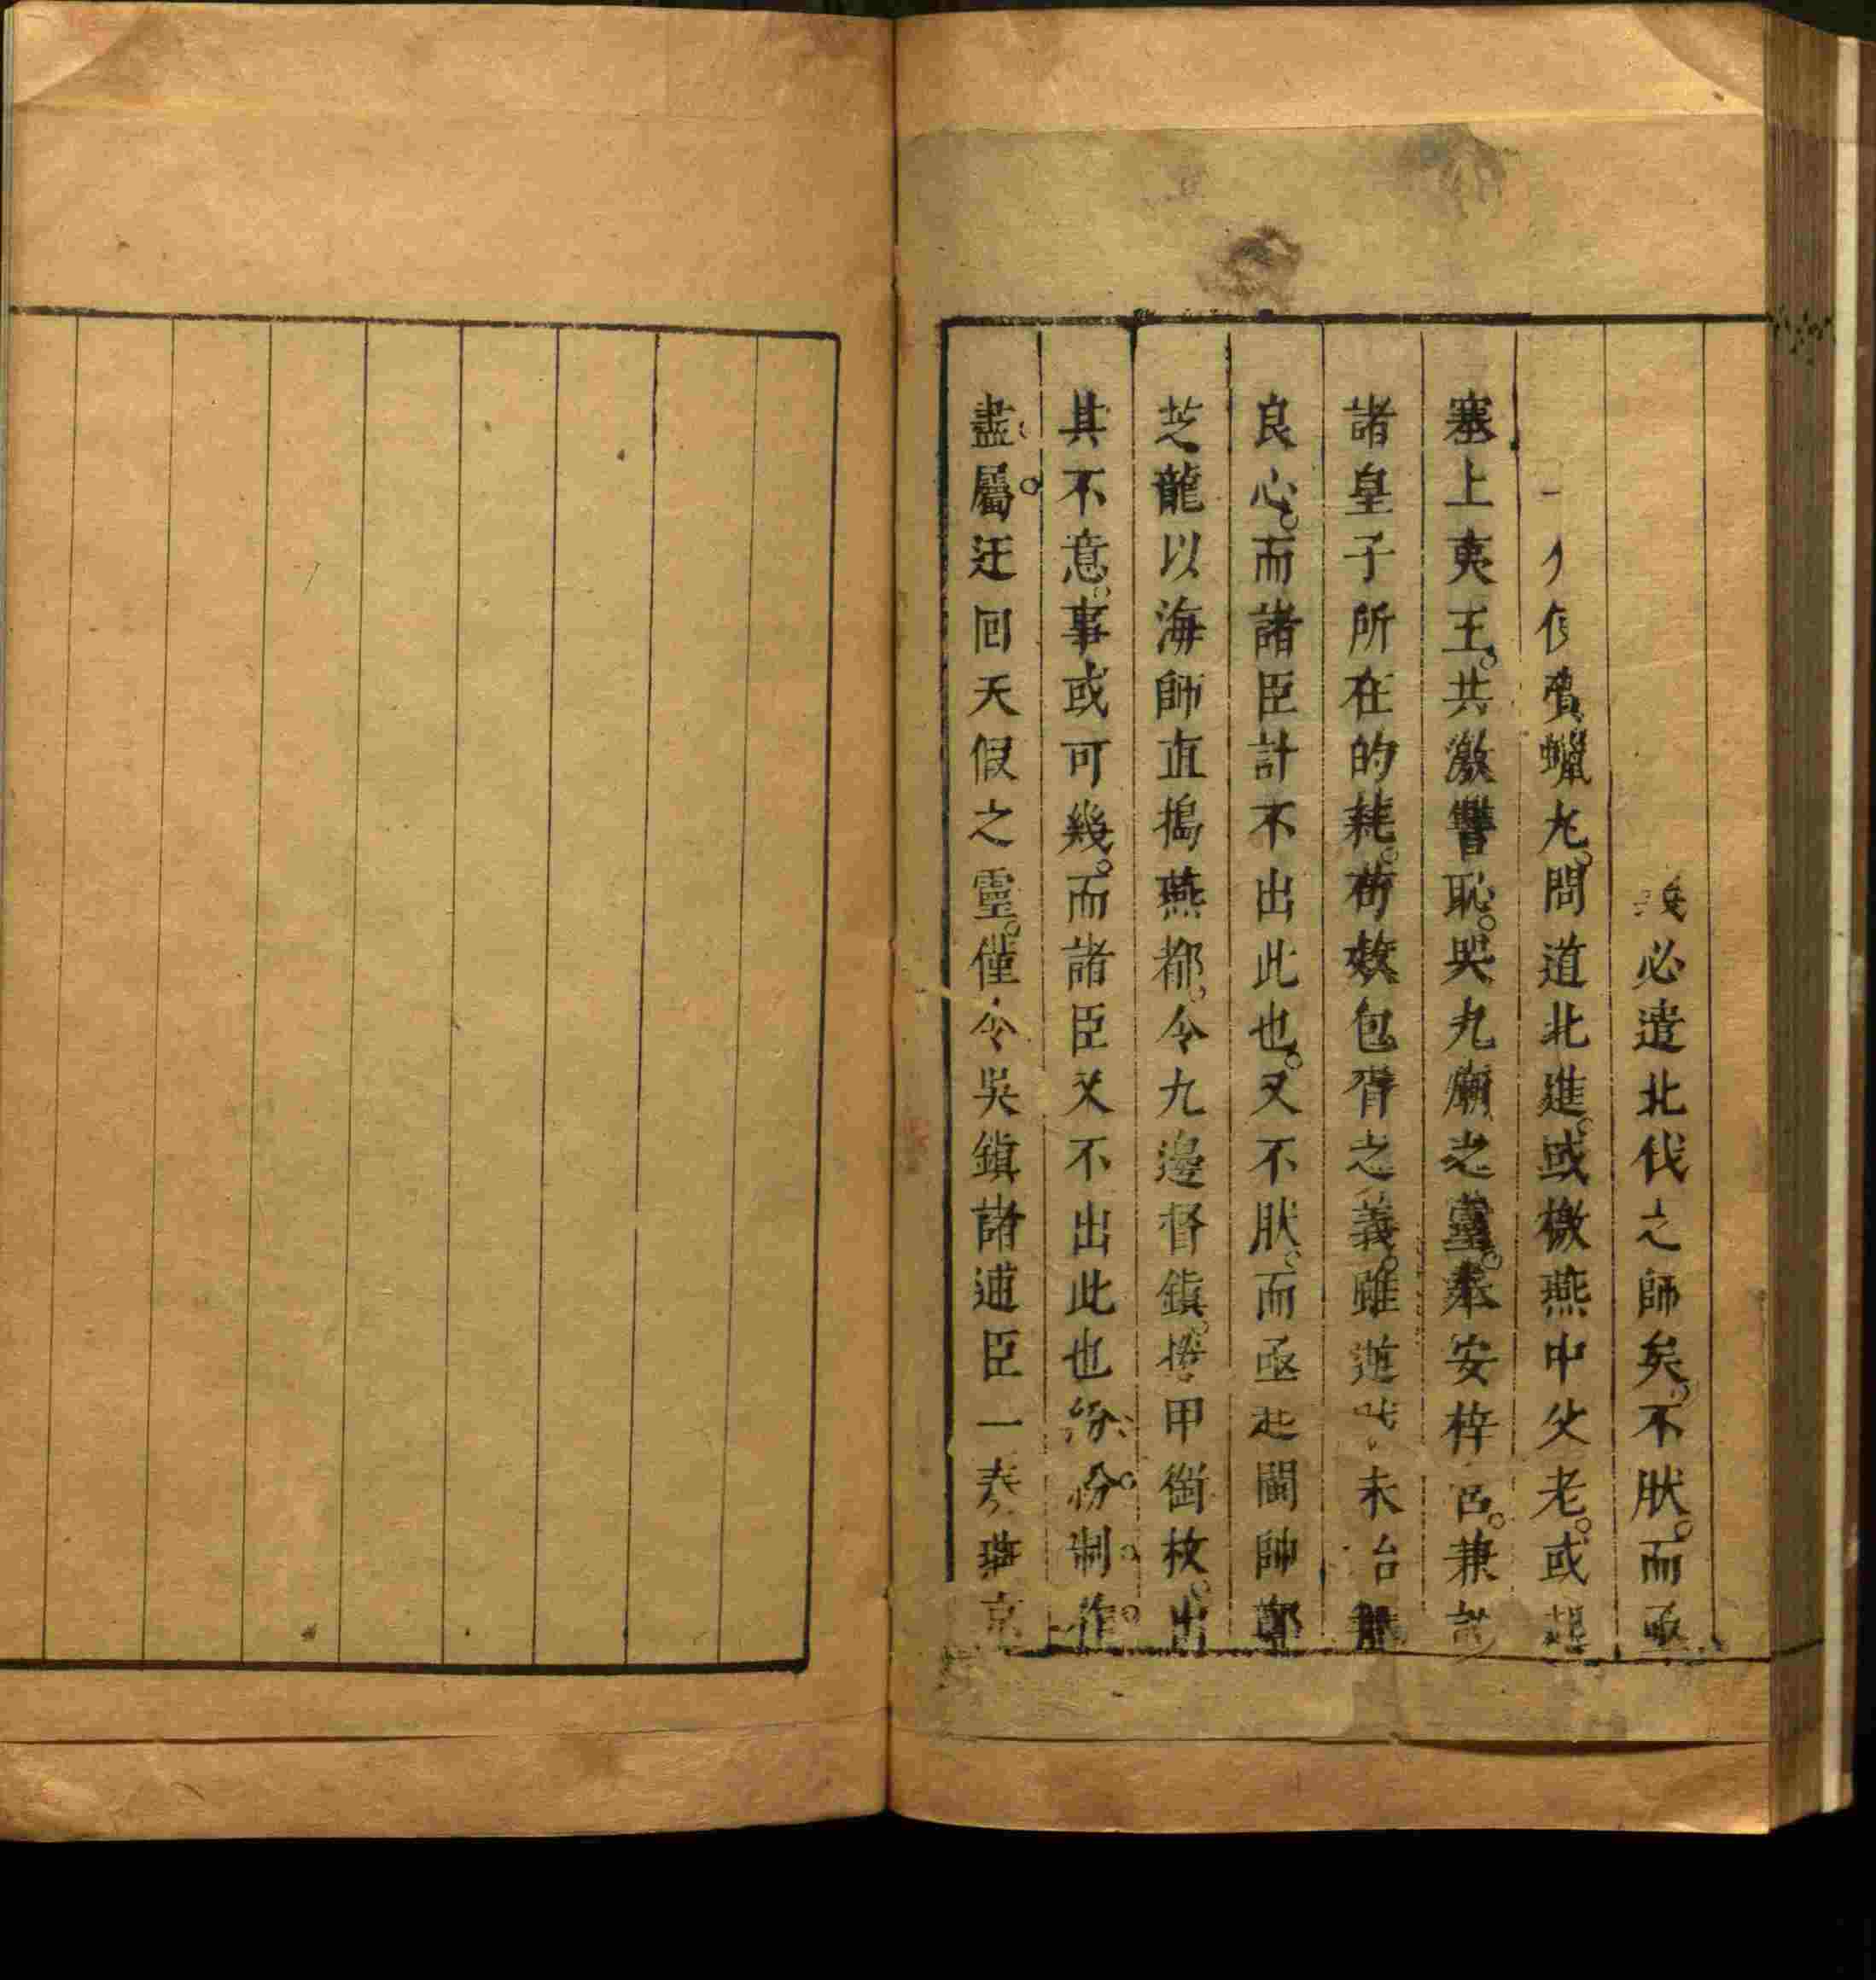 必遣北伐之師矣不肰而亟
蠟丸問道北進或檄燕中父老或
塞上夷王共激讐恥哭九廟之靈奉安梓宮兼訪
諸皇子所在的耗苟效包胥之義雖逆未台
良心而諸臣計不出此也又不肰而亟起閫帥鄭
芝龍以海師直搗燕都令九邊督鎮甲銜枚出
其不意事或可幾而諸臣又不出此也紛紛制作
盡屬迂回天假之靈僅令吳鎮諸逋臣一奏燕京